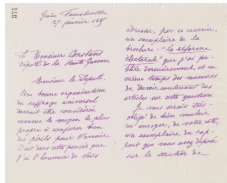 374
27 janvier 1889
A Monsieur Constans
Député de la Haute Garonne
Monsieur le Député,
Une bonne organisation
du suffrage universel
devrait être considérée
comme le moyen le plus
propre à conjurer bien
des périls pour l'avenir
c'est dans cette pensée que
j'ai l'honneur de vous
adresser, par ce courrier,
un exemplaire de la
brochure : "La réforme
électorale" que j'ai pu-
bliée dernièrement, et en
même temps des numéros
de                     contenant des
articles sur cette question.
Je vous serais très
obligé de bien vouloir
m'envoyer, de votre côté,
un exemplaire du rap-
port que vous avez déposé
sur le scrutin de